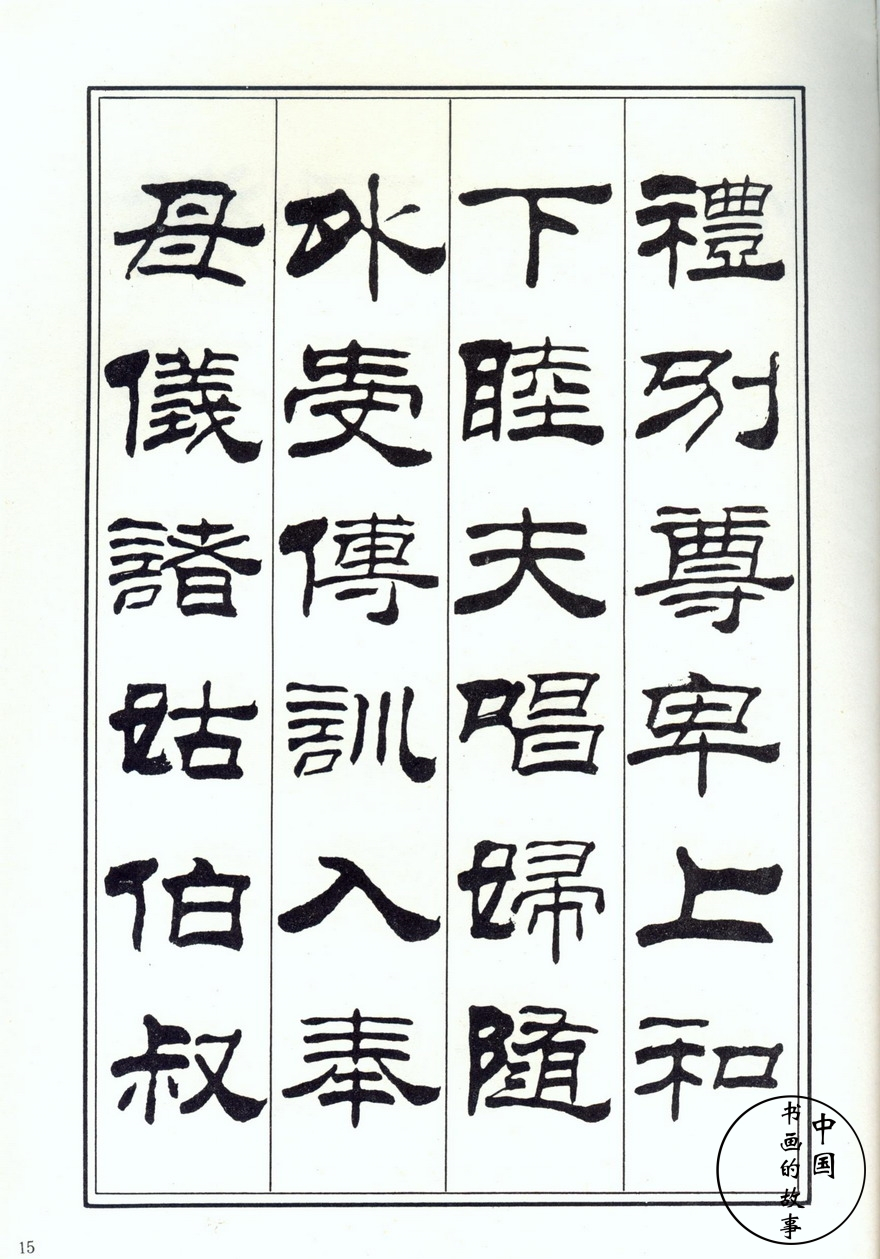 禮別尊卑上和
下睦夫唱婦隨
外受傅訓入奉
母儀諸姑伯叔
中国
书画的故事
15